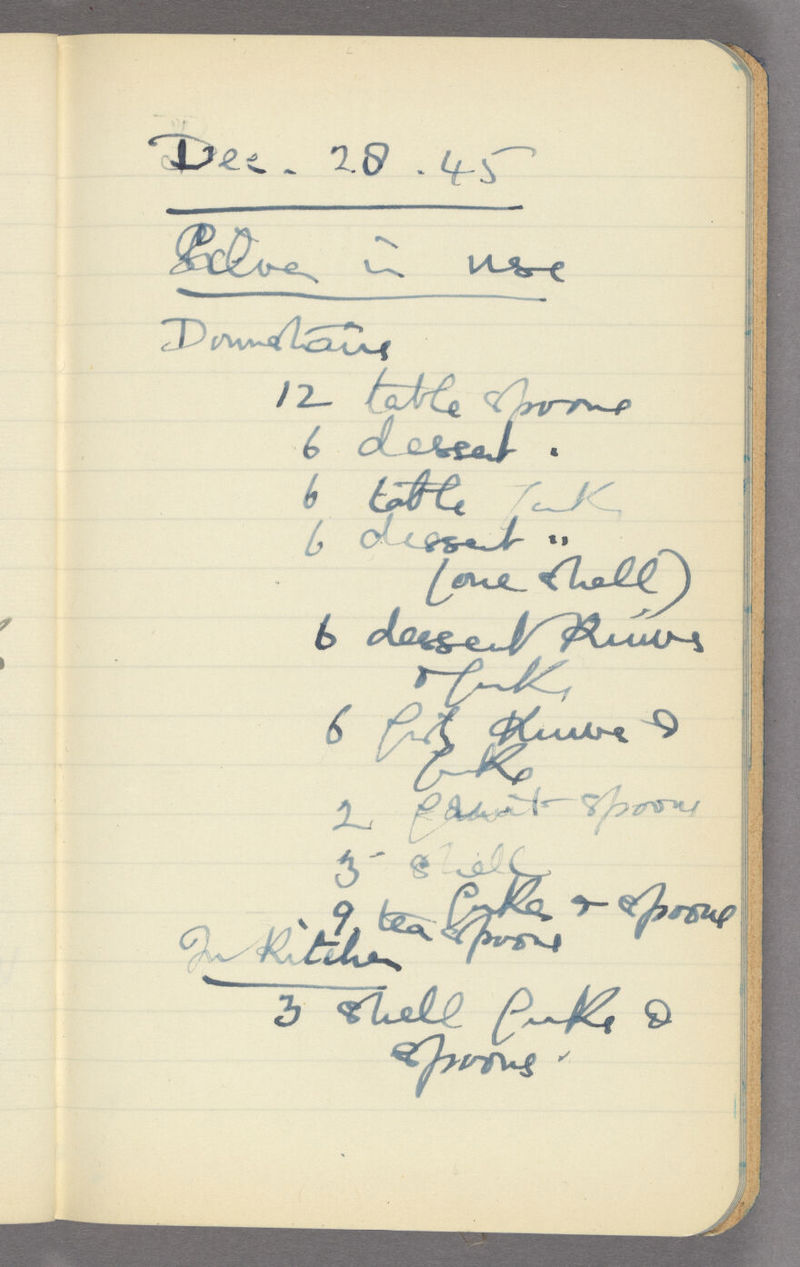 Dec. 28 . 45
Silver in use
Downstairs
12 table spoons
6 dessert "
6 table forks
6 dessert "
(one shell)
6 dessert knives
& forks
6 fish knives &
forks
2 gravit spoons
3 shell
forks & spoons
9 tea spoons
In Kitchen
3 shell forks &
spoons.